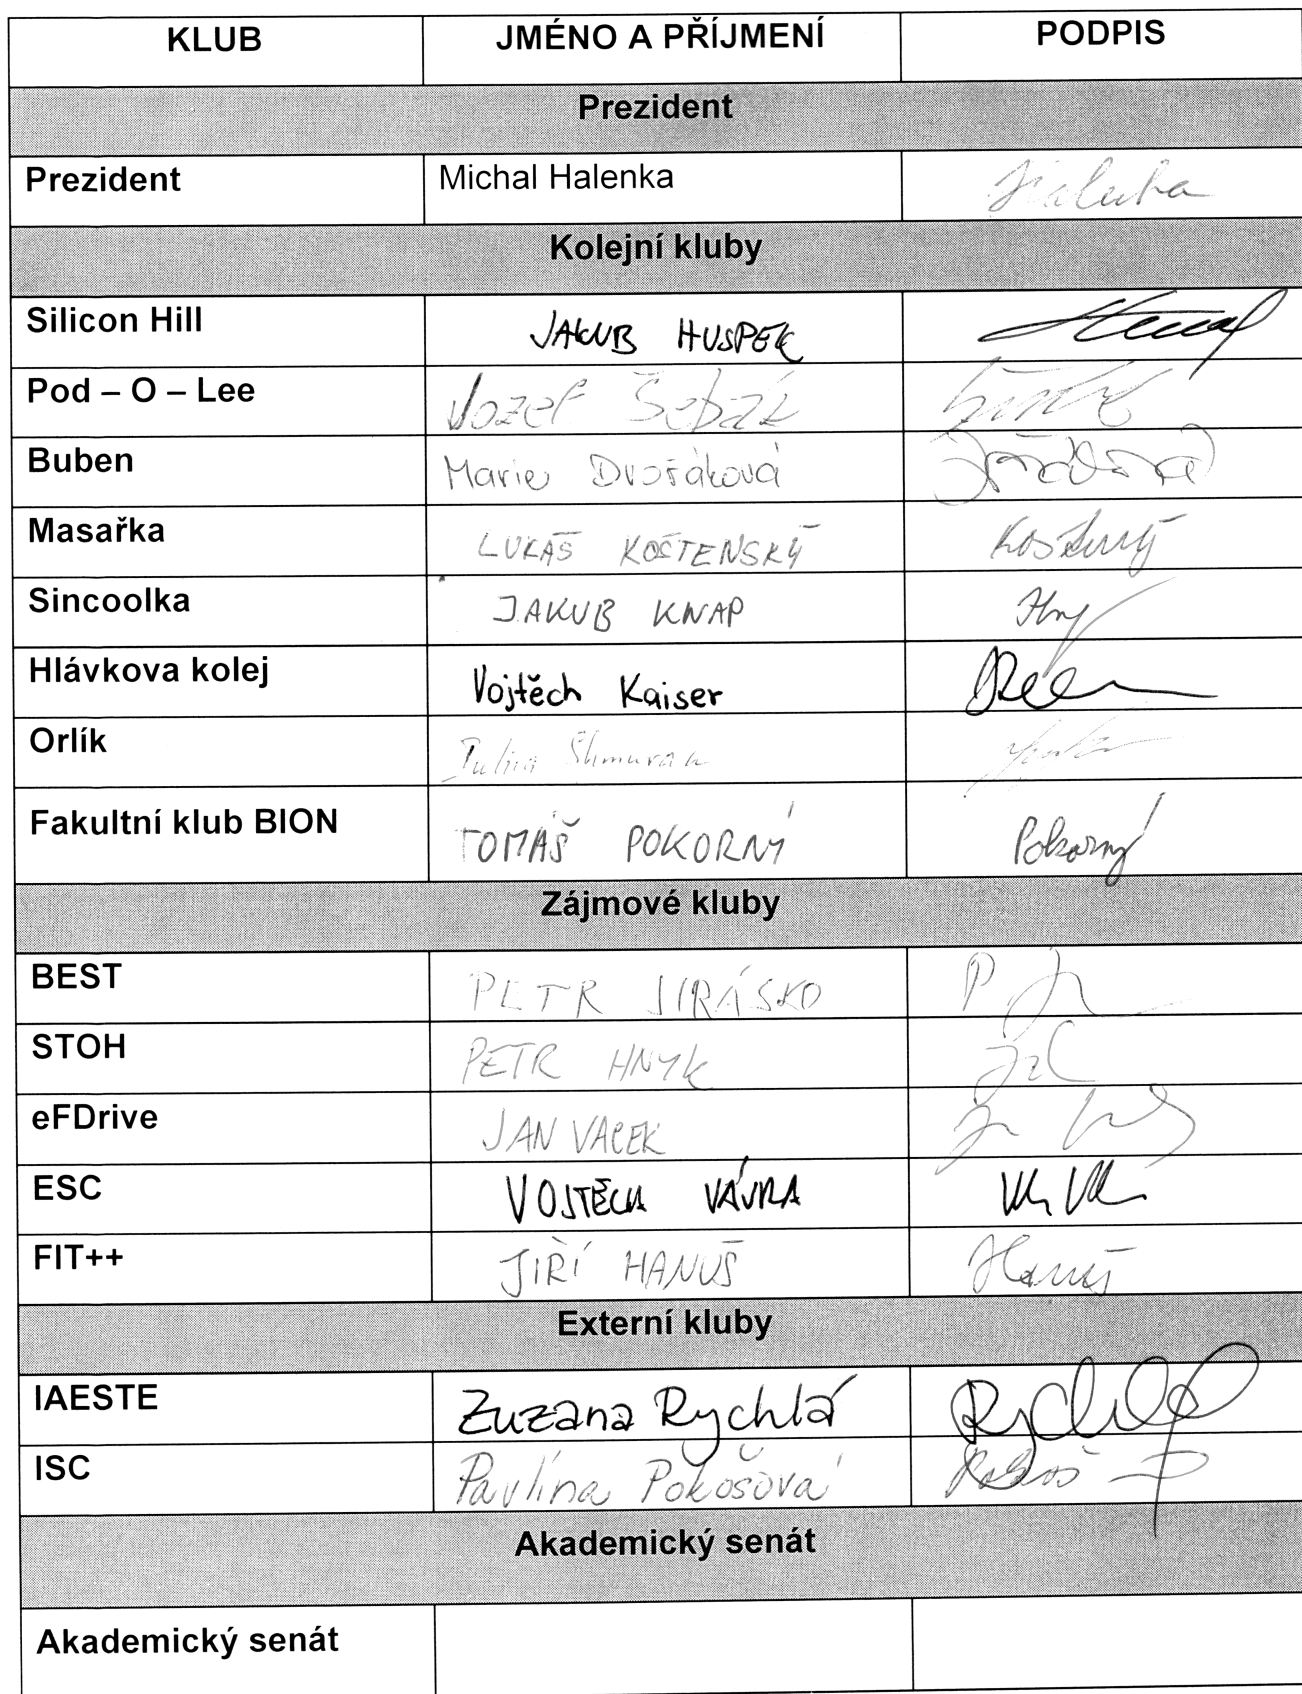 KLUB JMÉNO A PŘÍJMENÍ PODPIS
Prezident
Prezident Michal Halenka Halenka
Kolejní kluby
Silicon Hill JAKUB HUSPEK
Pod – O – Lee Jozef Šebák
Buben Marie Dvořáková
Masařka LUKÁŠ KOŠTENSKÝ
Sincoolka JAKUB KNAP
Hlávkova kolej Vojtěch Kaiser
Orlík
Fakultní klub BION TOMÁŠ POKORNÝ Pokorný
Zájmové kluby
BEST PETR JIRÁSKO
STOH PETR HNYK
eFDrive JAN VACEK
ESC VOJTĚCH VÁVRA
FIT++ JIŘÍ HANUŠ Hanuš
Externí kluby
IAESTE Zuzana Rychlá Rychlá
ISC Pavlína Pokošová
Akademický senát
Akademický senát